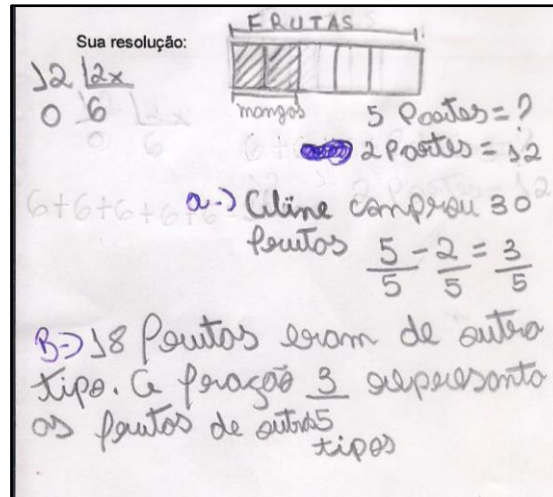 FRUTAS
Sua resolução:
12 2x
0 6
mangas
5 Partes = ?
2 Partes = 12
6+6+6+6+6
a-) Celine comprou 30
frutas 5/5 - 2/5 = 3/5
B-) 18 frutas eram de outro
tipo. A fração 3/5 representa
as frutas de outros
tipos